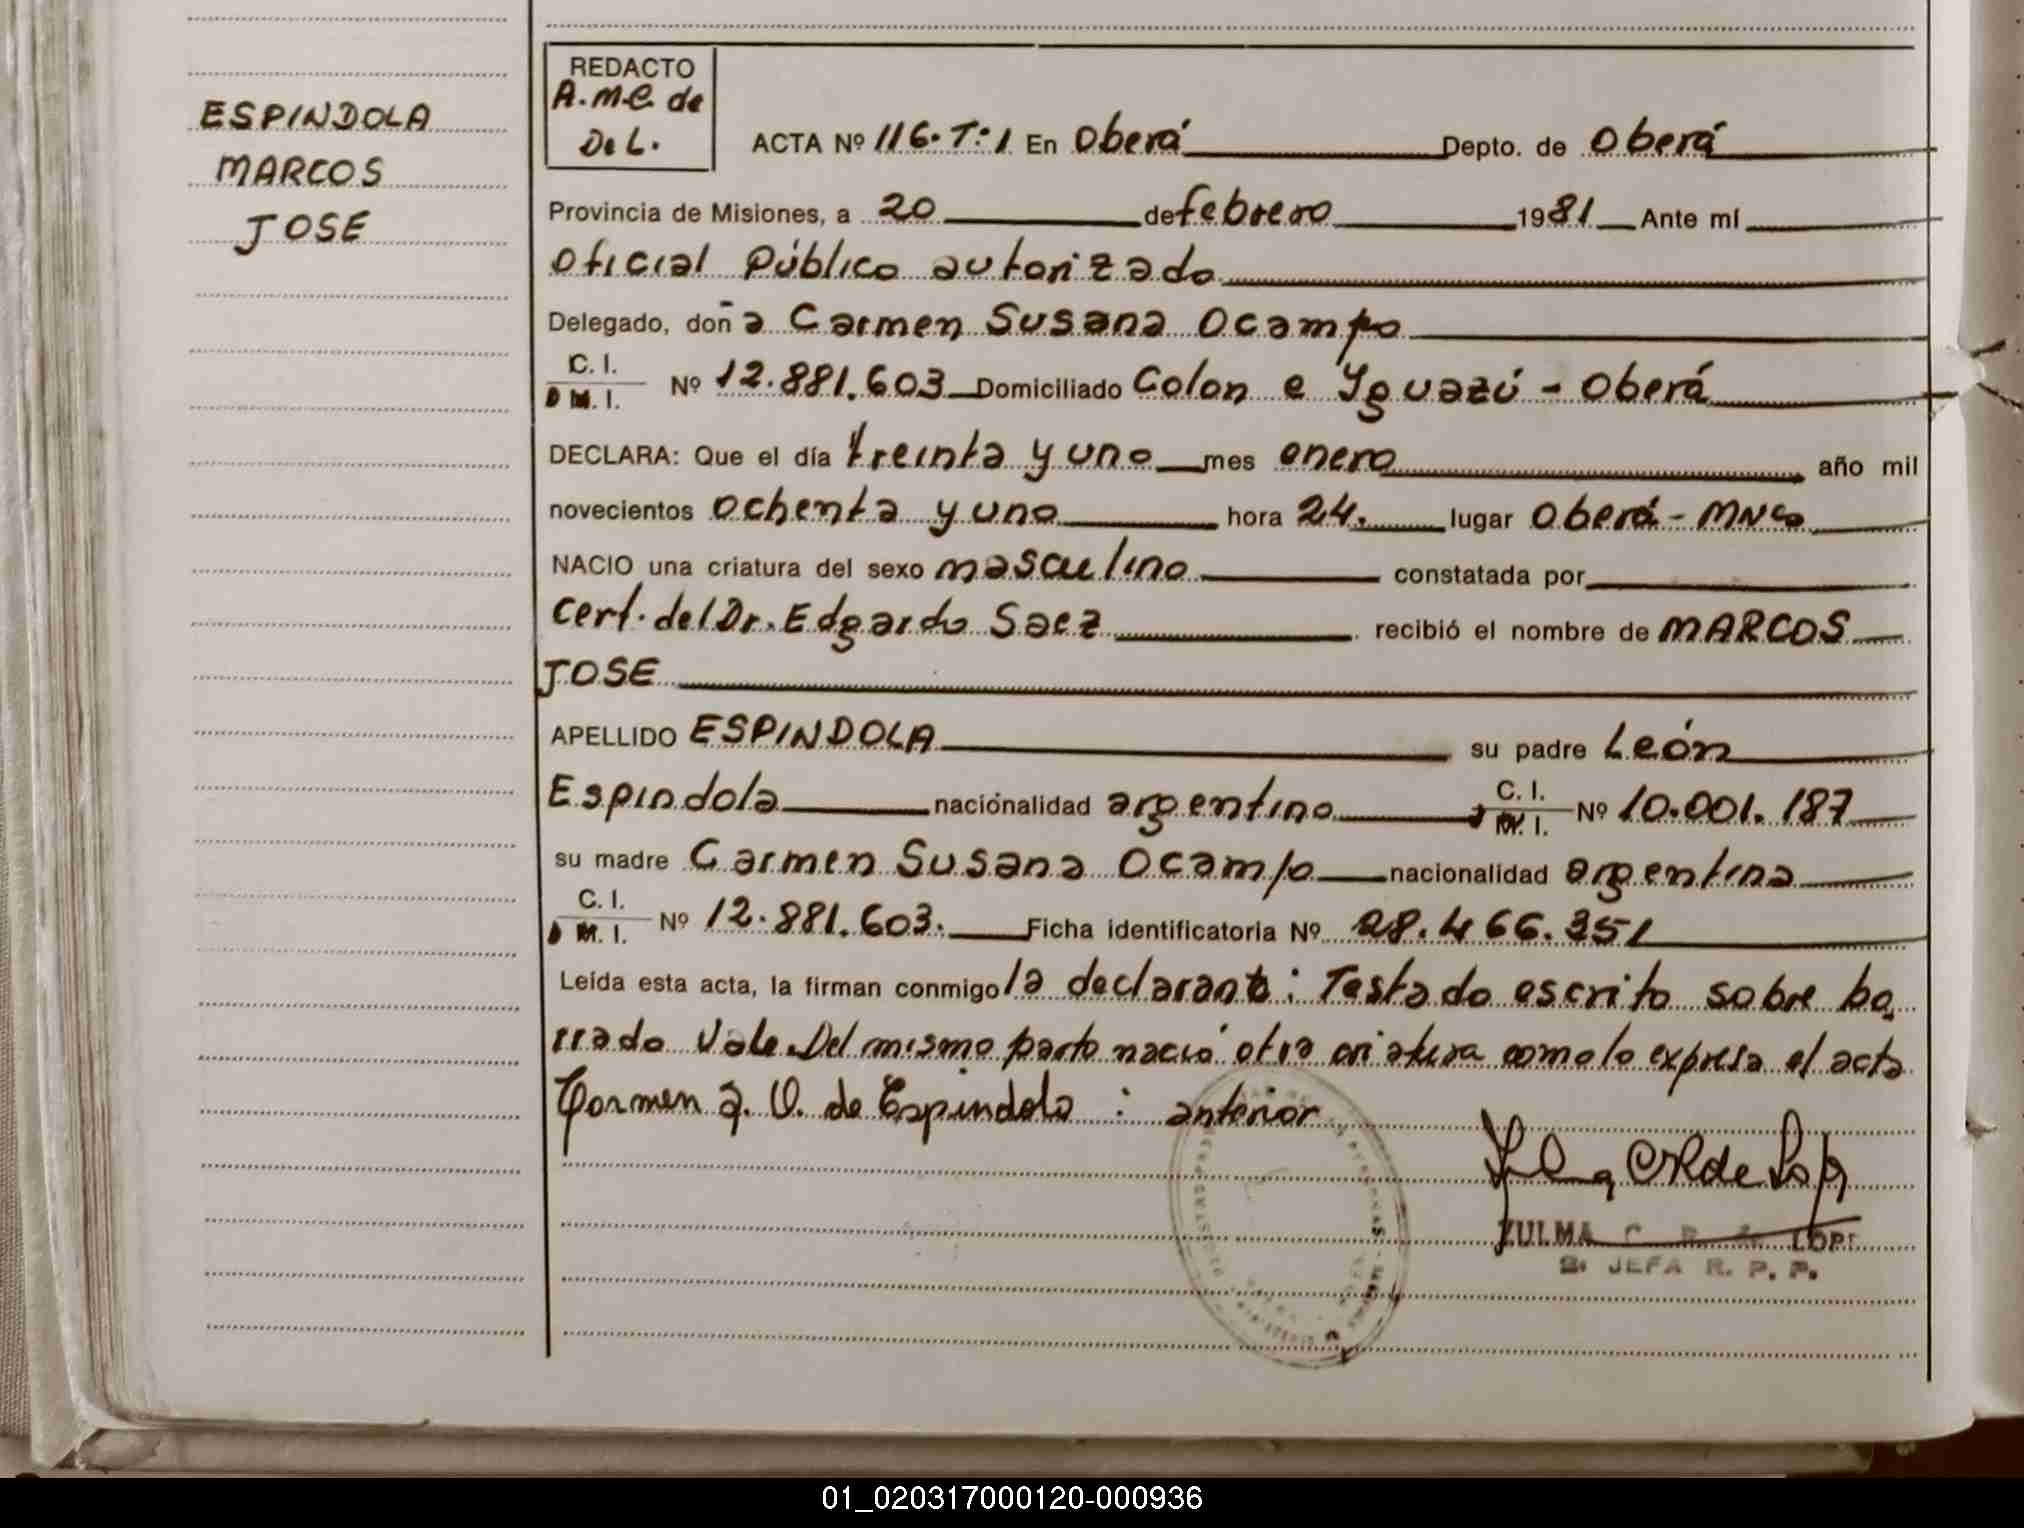 ESPINDOLA
MARCOS
JOSE
REDACTO
A.M.C. de
De L.
ACTA Nº 116. T:1 En Oberá Depto. de Oberá
Provincia de Misiones, a 20 de febrero 1981 Ante mí
Oficial Público autorizado
Delegado, doña Carmen Susana Ocampo
C. I.
D M. I. Nº 12.881.603 Domiciliado Colon e Yguazú - Oberá
DECLARA: Que el día treinta y uno mes enero año mil
novecientos ochenta y uno hora 24. lugar Oberá - Mnes
NACIO una criatura del sexo masculino constatada por
Cert. del Dr. Edgardo Saez recibió el nombre de MARCOS
JOSE
APELLIDO ESPINDOLA su padre León
Espindola nacionalidad argentino C. I. M. I. Nº 10.001.187
su madre Carmen Susana Ocampo nacionalidad argentina
C. I.
D M. I. Nº 12.881.603. Ficha identificatoria Nº 28.466.351
Leída esta acta, la firman conmigo la declarante: Testado escrito sobre bo
rrado Vale. Del mismo parto nació otra criatura como lo expresa el acta
Carmen S. O. de Espindola : anterior
ZULMA C. LOPE
JEFA R. P. P.
01_020317000120-000936